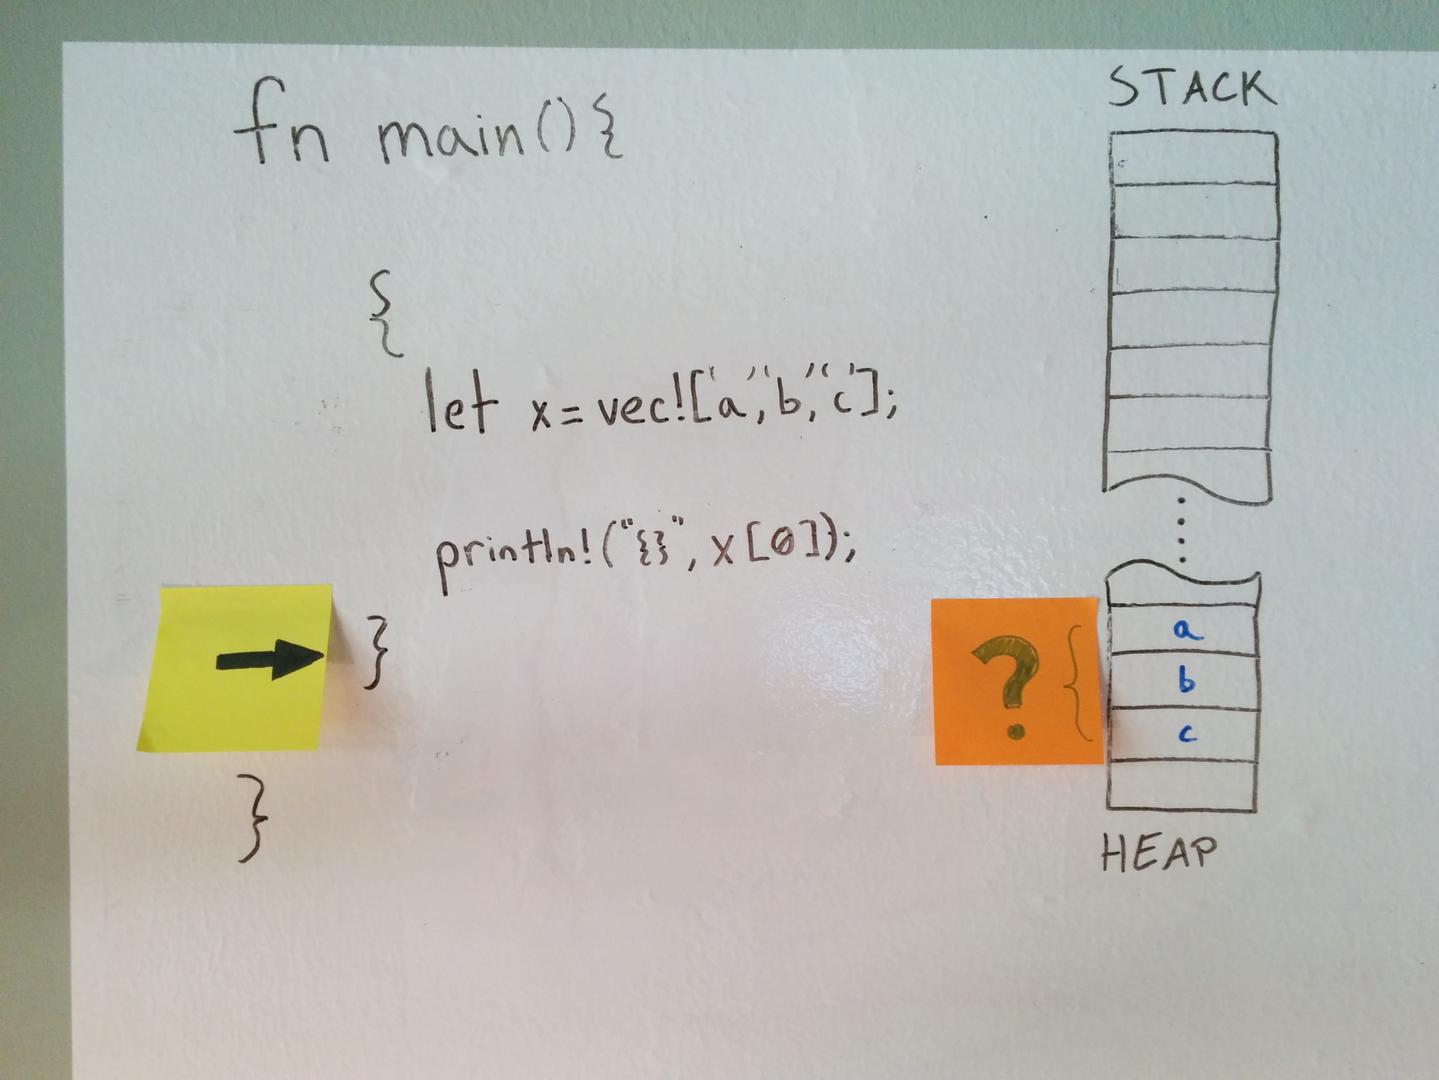 fn main(){
{
let x=vec!['a','b','c'];
println!("{}", x[0]);
}
}
STACK
a
?
{
b
c
HEAP